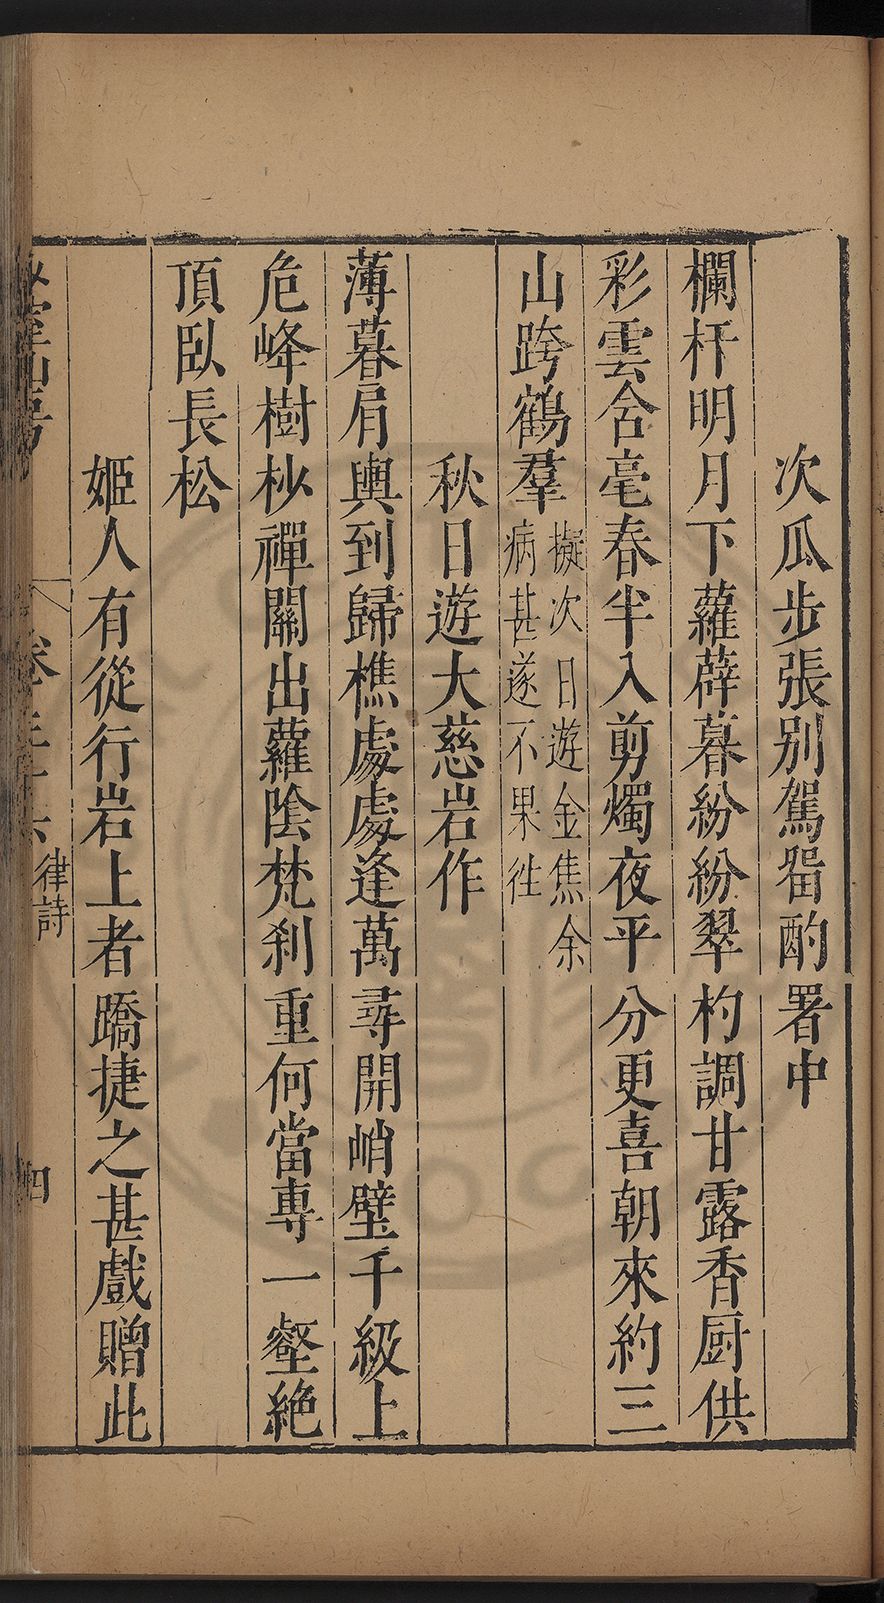 次瓜步張別駕畱酌署中
欄杆明月下蘿薜暮紛紛翠杓調甘露香厨供
彩雲含毫春半入剪燭夜平分更喜朝來約三
山跨鶴羣
擬次日遊金焦余
病甚遂不果徃
秋日遊大慈岩作
薄暮肩輿到歸樵處處逢萬尋開峭壁千級上
危峰樹杪禪關出蘿陰梵刹重何當專一壑絶
頂臥長松
姬人有從行岩上者蹻捷之甚戲贈此
律詩
四